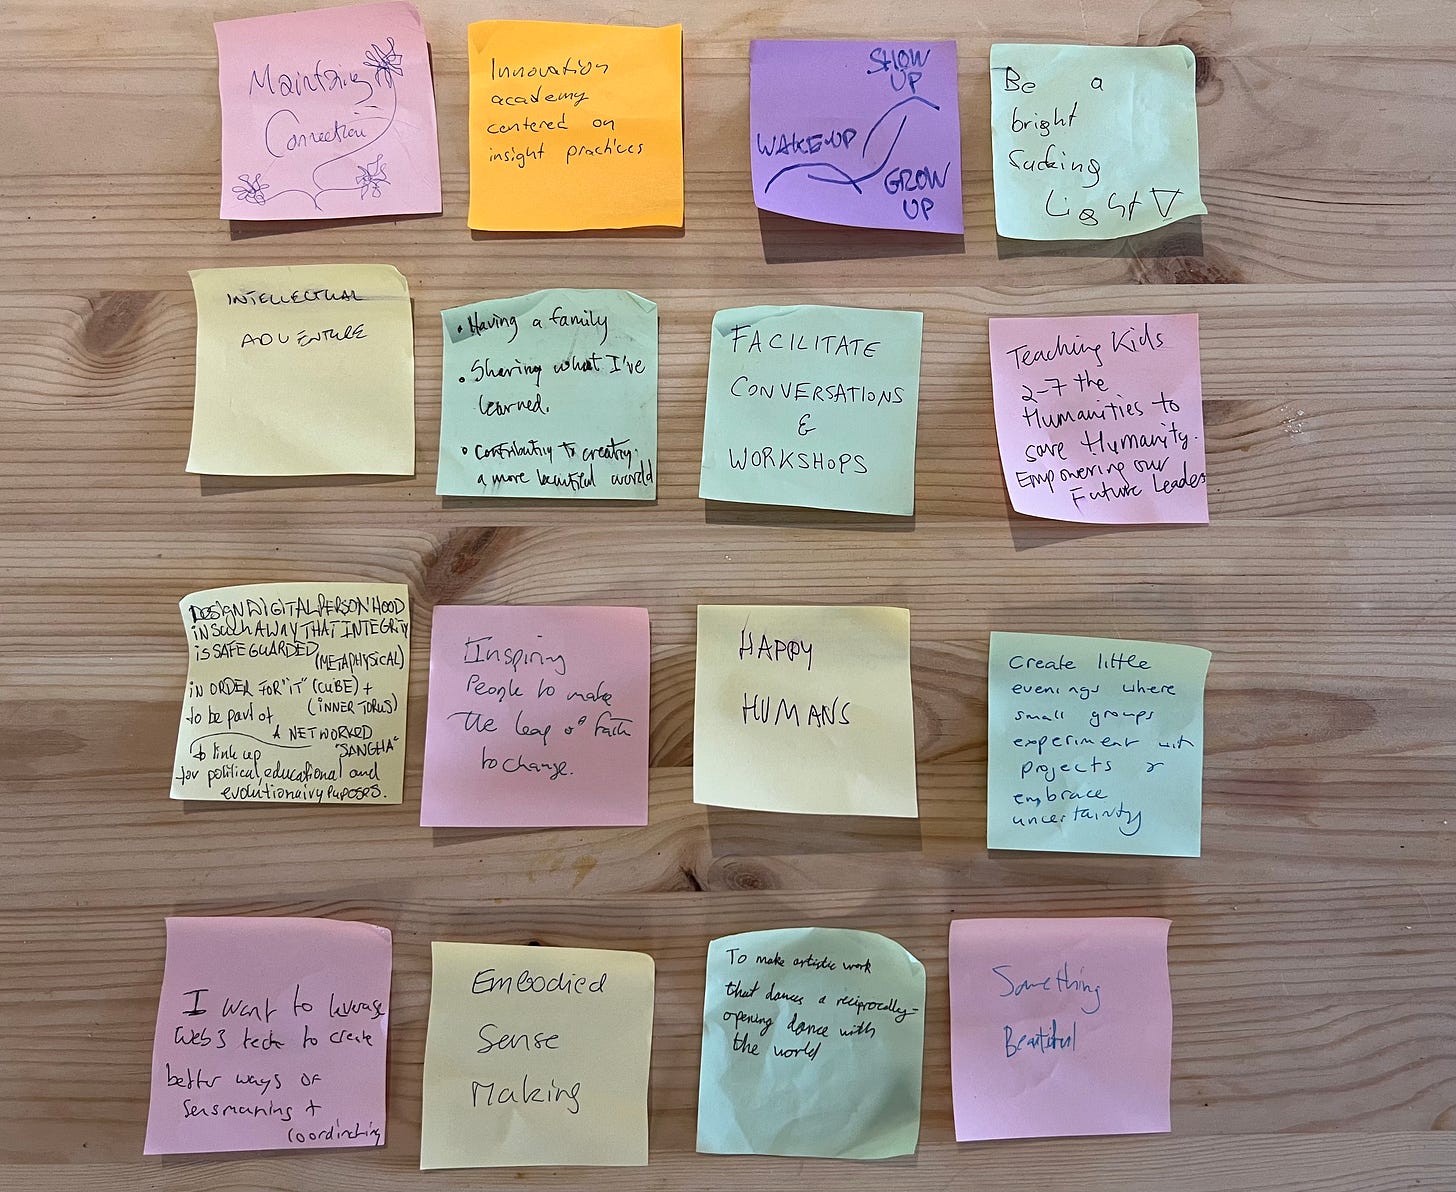 Maintaining
Connection
Innovation
academy
centered on
insight practices
SHOW
UP
WAKE UP
GROW
UP
Be a
bright
fucking
Light
INTELLECTUAL
ADVENTURE
• Having a family
• Sharing what I've
learned.
• Contributing to creating
a more beautiful world
FACILITATE
CONVERSATIONS
&
WORKSHOPS
Teaching Kids
2-7 the
Humanities to
save Humanity.
Empowering our
Future Leaders
DESIGN DIGITAL PERSONHOOD
IN SUCH A WAY THAT INTEGRITY
IS SAFEGUARDED
(METAPHYSICAL)
IN ORDER FOR "IT" (CUBE) +
(INNER TORUS)
to be part of
A NETWORKED
"SANGHA"
to link up
for political, educational and
evolutionairy purposes.
Inspiring
People to make
the leap of faith
to change.
HAPPY
HUMANS
Create little
evenings where
small groups
experiment with
projects &
embrace
uncertainty
I want to leverage
Web3 tech to create
better ways of
sensmaking +
coordinating
Embodied
Sense
Making
To make artistic work
that dances a reciprocally-
opening dance with
the world
Something
Beautiful